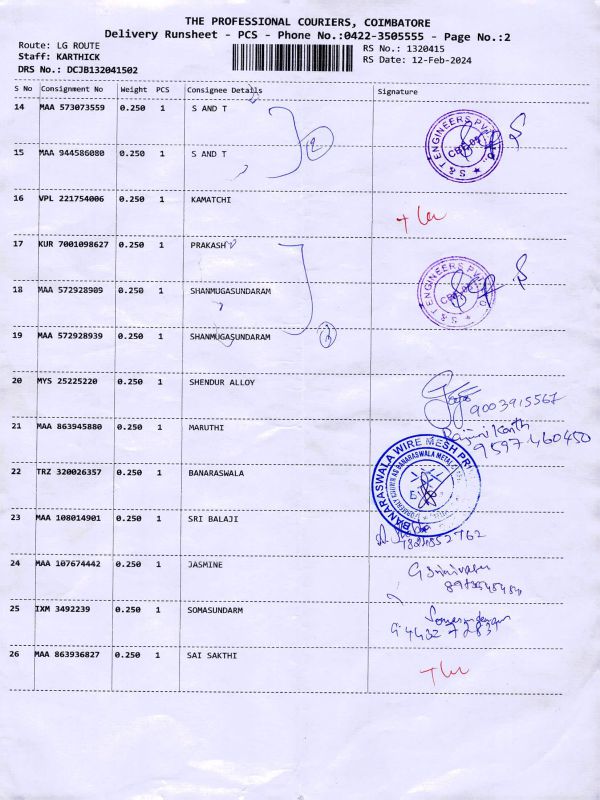 THE PROFESSIONAL COURIERS, COIMBATORE
Delivery Runsheet - PCS - Phone No.:0422-3505555 - Page No.:2
Route: LG ROUTE
RS No.: 1320415
Staff: KARTHICK
RS Date: 12-Feb-2024
DRS No.: DCJB132041502
S No Consignment No Weight PCS Consignee Details Signature
14 MAA 573073559 0.250 1 S AND T
15 MAA 944586080 0.250 1 S AND T
2
S & T ENGINEERS
16 VPL 221754006 0.250 1 KAMATCHI
17 KUR 7001098627 0.250 1 PRAKASH
18 MAA 572928909 0.250 1 SHANMUGASUNDARAM
S & T ENGINEERS
19 MAA 572928939 0.250 1 SHANMUGASUNDARAM
20 MYS 25225220 0.250 1 SHENDUR ALLOY
9003915567
21 MAA 863945880 0.250 1 MARUTHI
Rajini Kanth
9597460450
22 TRZ 320026357 0.250 1 BANARASWALA
BANARASWALA WIRE MESH
23 MAA 108014901 0.250 1 SRI BALAJI
24 MAA 107674442 0.250 1 JASMINE
25 IXM 3492239 0.250 1 SOMASUNDARM
26 MAA 863936827 0.250 1 SAI SAKTHI